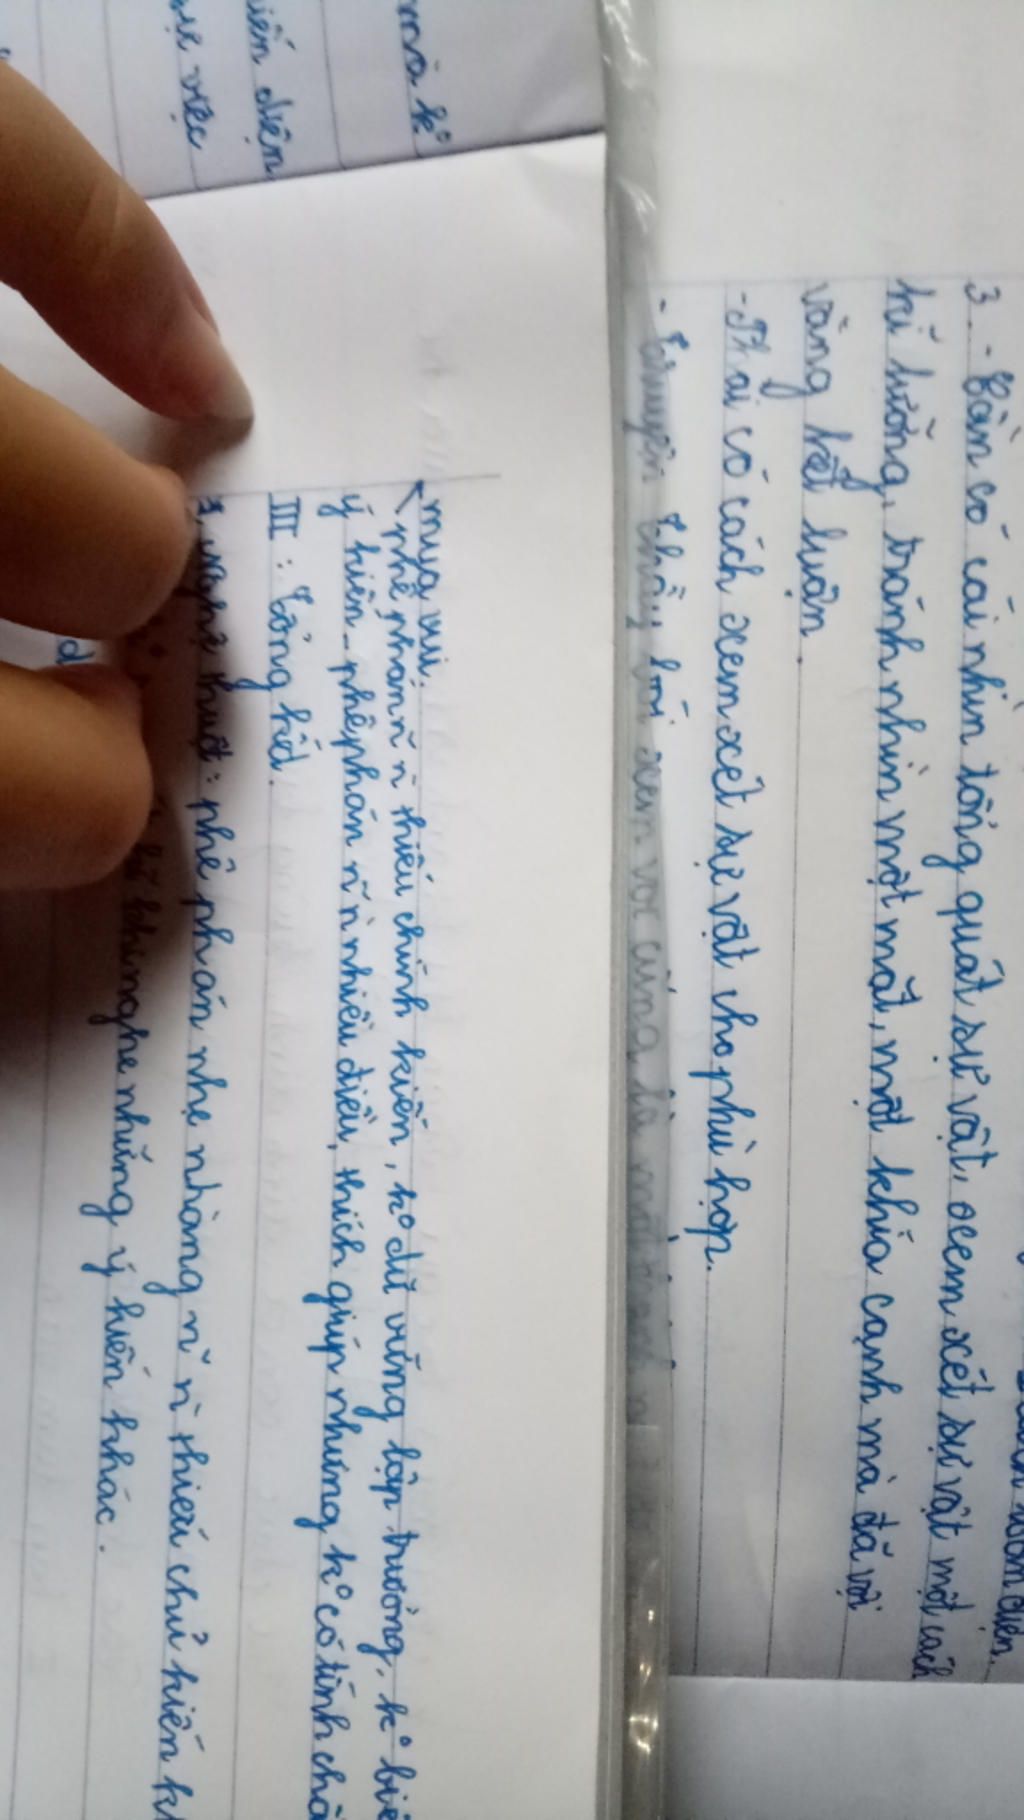 toàn diện.
3. - Cần có cái nhìn tổng quát sự vật, xem xét sự vật một cách
kĩ lưỡng, tránh nhìn một mặt, một khía cạnh mà đã vội
vàng kết luận.
- Phải có cách xem xét sự vật cho phù hợp.
- Truyện thầy bói xem voi cũng là một
mà k°
iến diện
sự việc
mua vui.
phê phán n~ n` thiếu chính kiến, k° giữ vững lập trường, k° biế
ý kiến - phê phán n~ n` nhiều điều, thích giúp nhưng k° có tính chấ
III: Tổng kết.
1. Nghệ thuật: phê phán nhẹ nhàng n~ n` thiếu chủ kiến k
khi nghe những ý kiến khác.